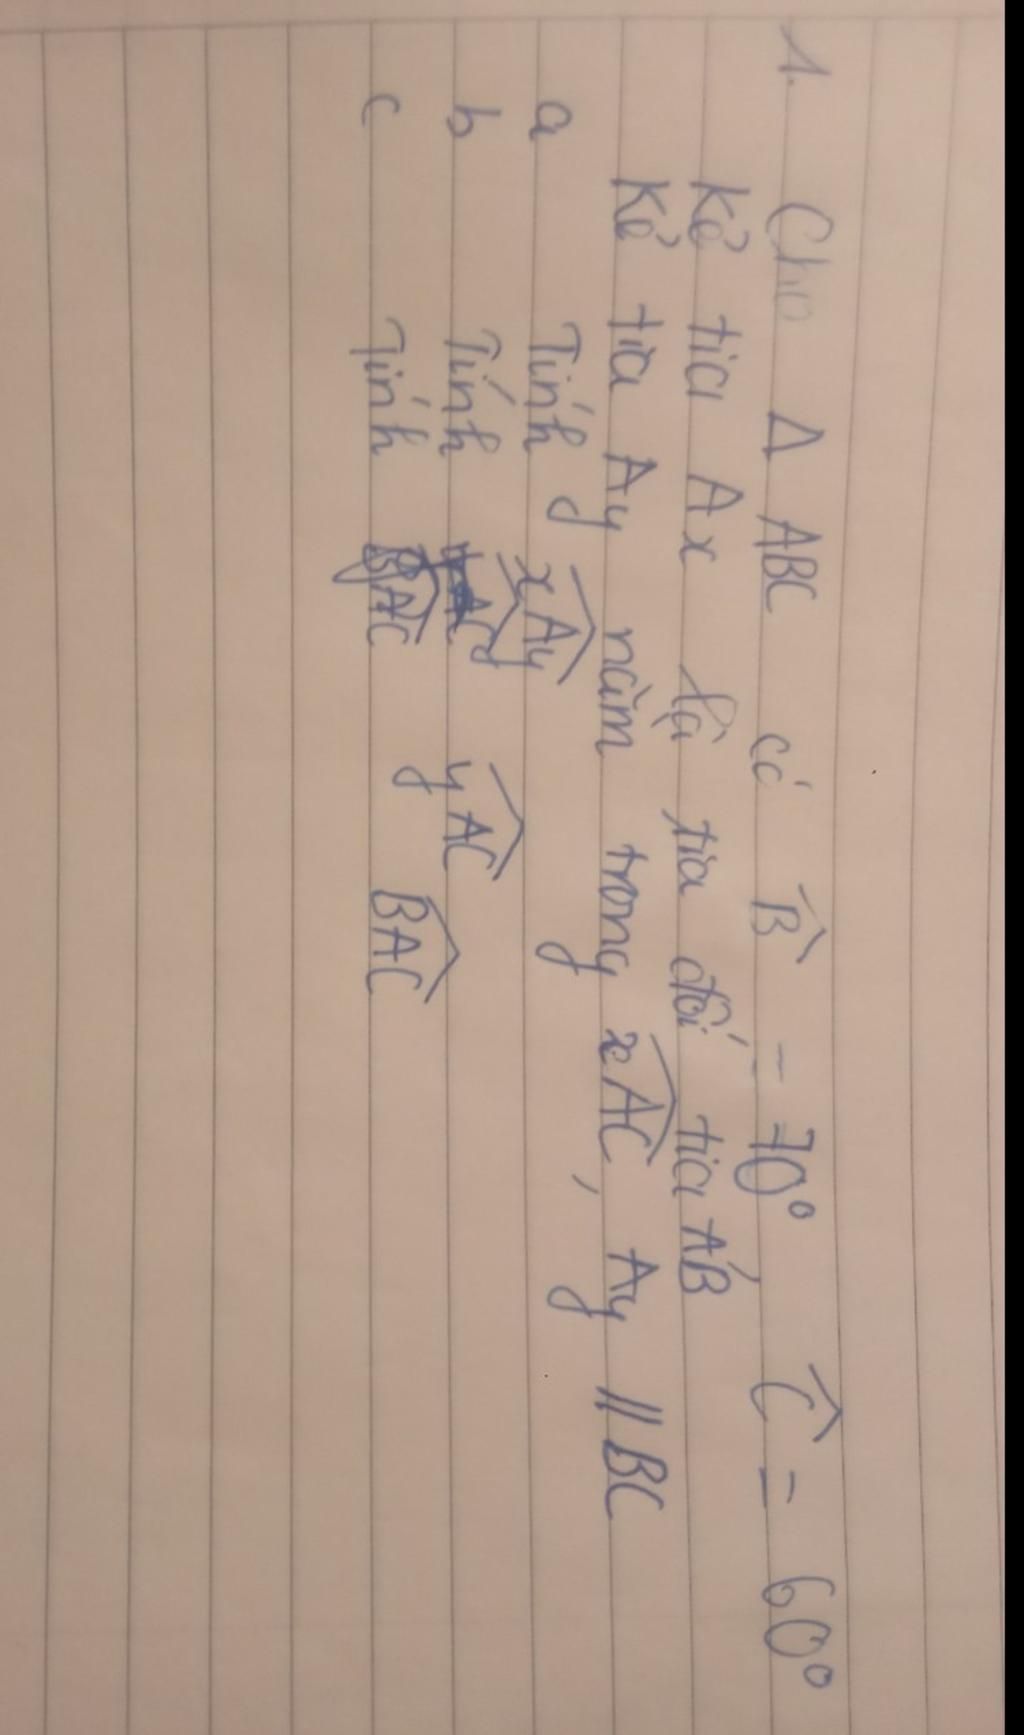 1. Cho Δ ABC có B̂ = 70° Ĉ = 60°
Kẻ tia Ax là tia đối tia AB
Kẻ tia Ay nằm trong xAC, Ay // BC
a Tính xAy
b Tính yAC
c Tính BAC